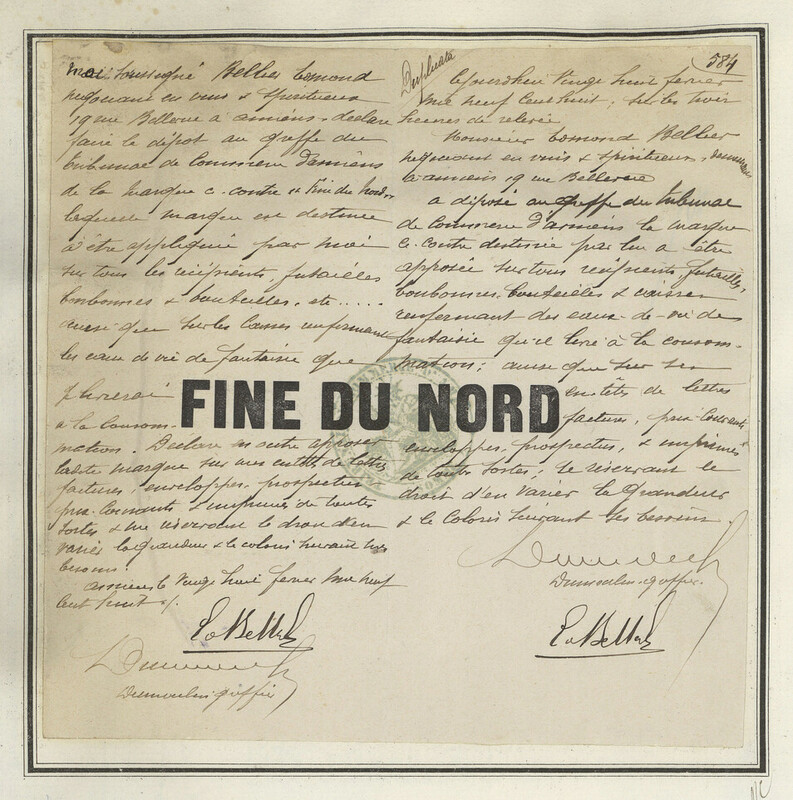 Duplicata
584
Moi soussigné Bellier Edmond
négociant en vins & spiritueux
19 rue Bellevue à Amiens, déclare
faire le dépôt au greffe du
tribunal de Commerce d'Amiens
de la marque ci-contre « Fine du Nord »
laquelle marque est destinée
à être appliquée par moi
sur tous les récipients, futailles
bonbonnes & bouteilles, etc.....
ainsi que sur les caisses renfermant
les eaux de vie de fantaisie que
je livrerai
à la consom-
mation. Déclare en outre apposer
ladite marque sur mes entêtes de lettres
factures, enveloppes, prospectus
prix-courants & imprimés de toutes
sortes & me réservant le droit d'en
varier la grandeur & le coloris suivant mes
besoins.
Amiens le vingt huit février mil neuf
cent huit
E. Bellier
Dumoulin greffier
FINE DU NORD
Cejourd'hui vingt huit février
mil neuf cent huit, sur les trois
heures de relevée
Monsieur Edmond Bellier
négociant en vins & spiritueux, demeurant
à Amiens, 19 rue Bellevue
a déposé au greffe du tribunal
de Commerce d'Amiens la marque
ci-contre destinée par lui à être
apposée sur tous récipients, futailles,
bonbonnes, bouteilles & caisses
renfermant des eaux-de-vie de
fantaisie qu'il livre à la consom-
mation; ainsi que sur ses
entêtes de lettres
factures, prix-courants
enveloppes, prospectus, & imprimés
de toutes sortes; se réservant le
droit d'en varier la grandeur
& le coloris suivant ses besoins.
Dumoulin greffier.
E. Bellier